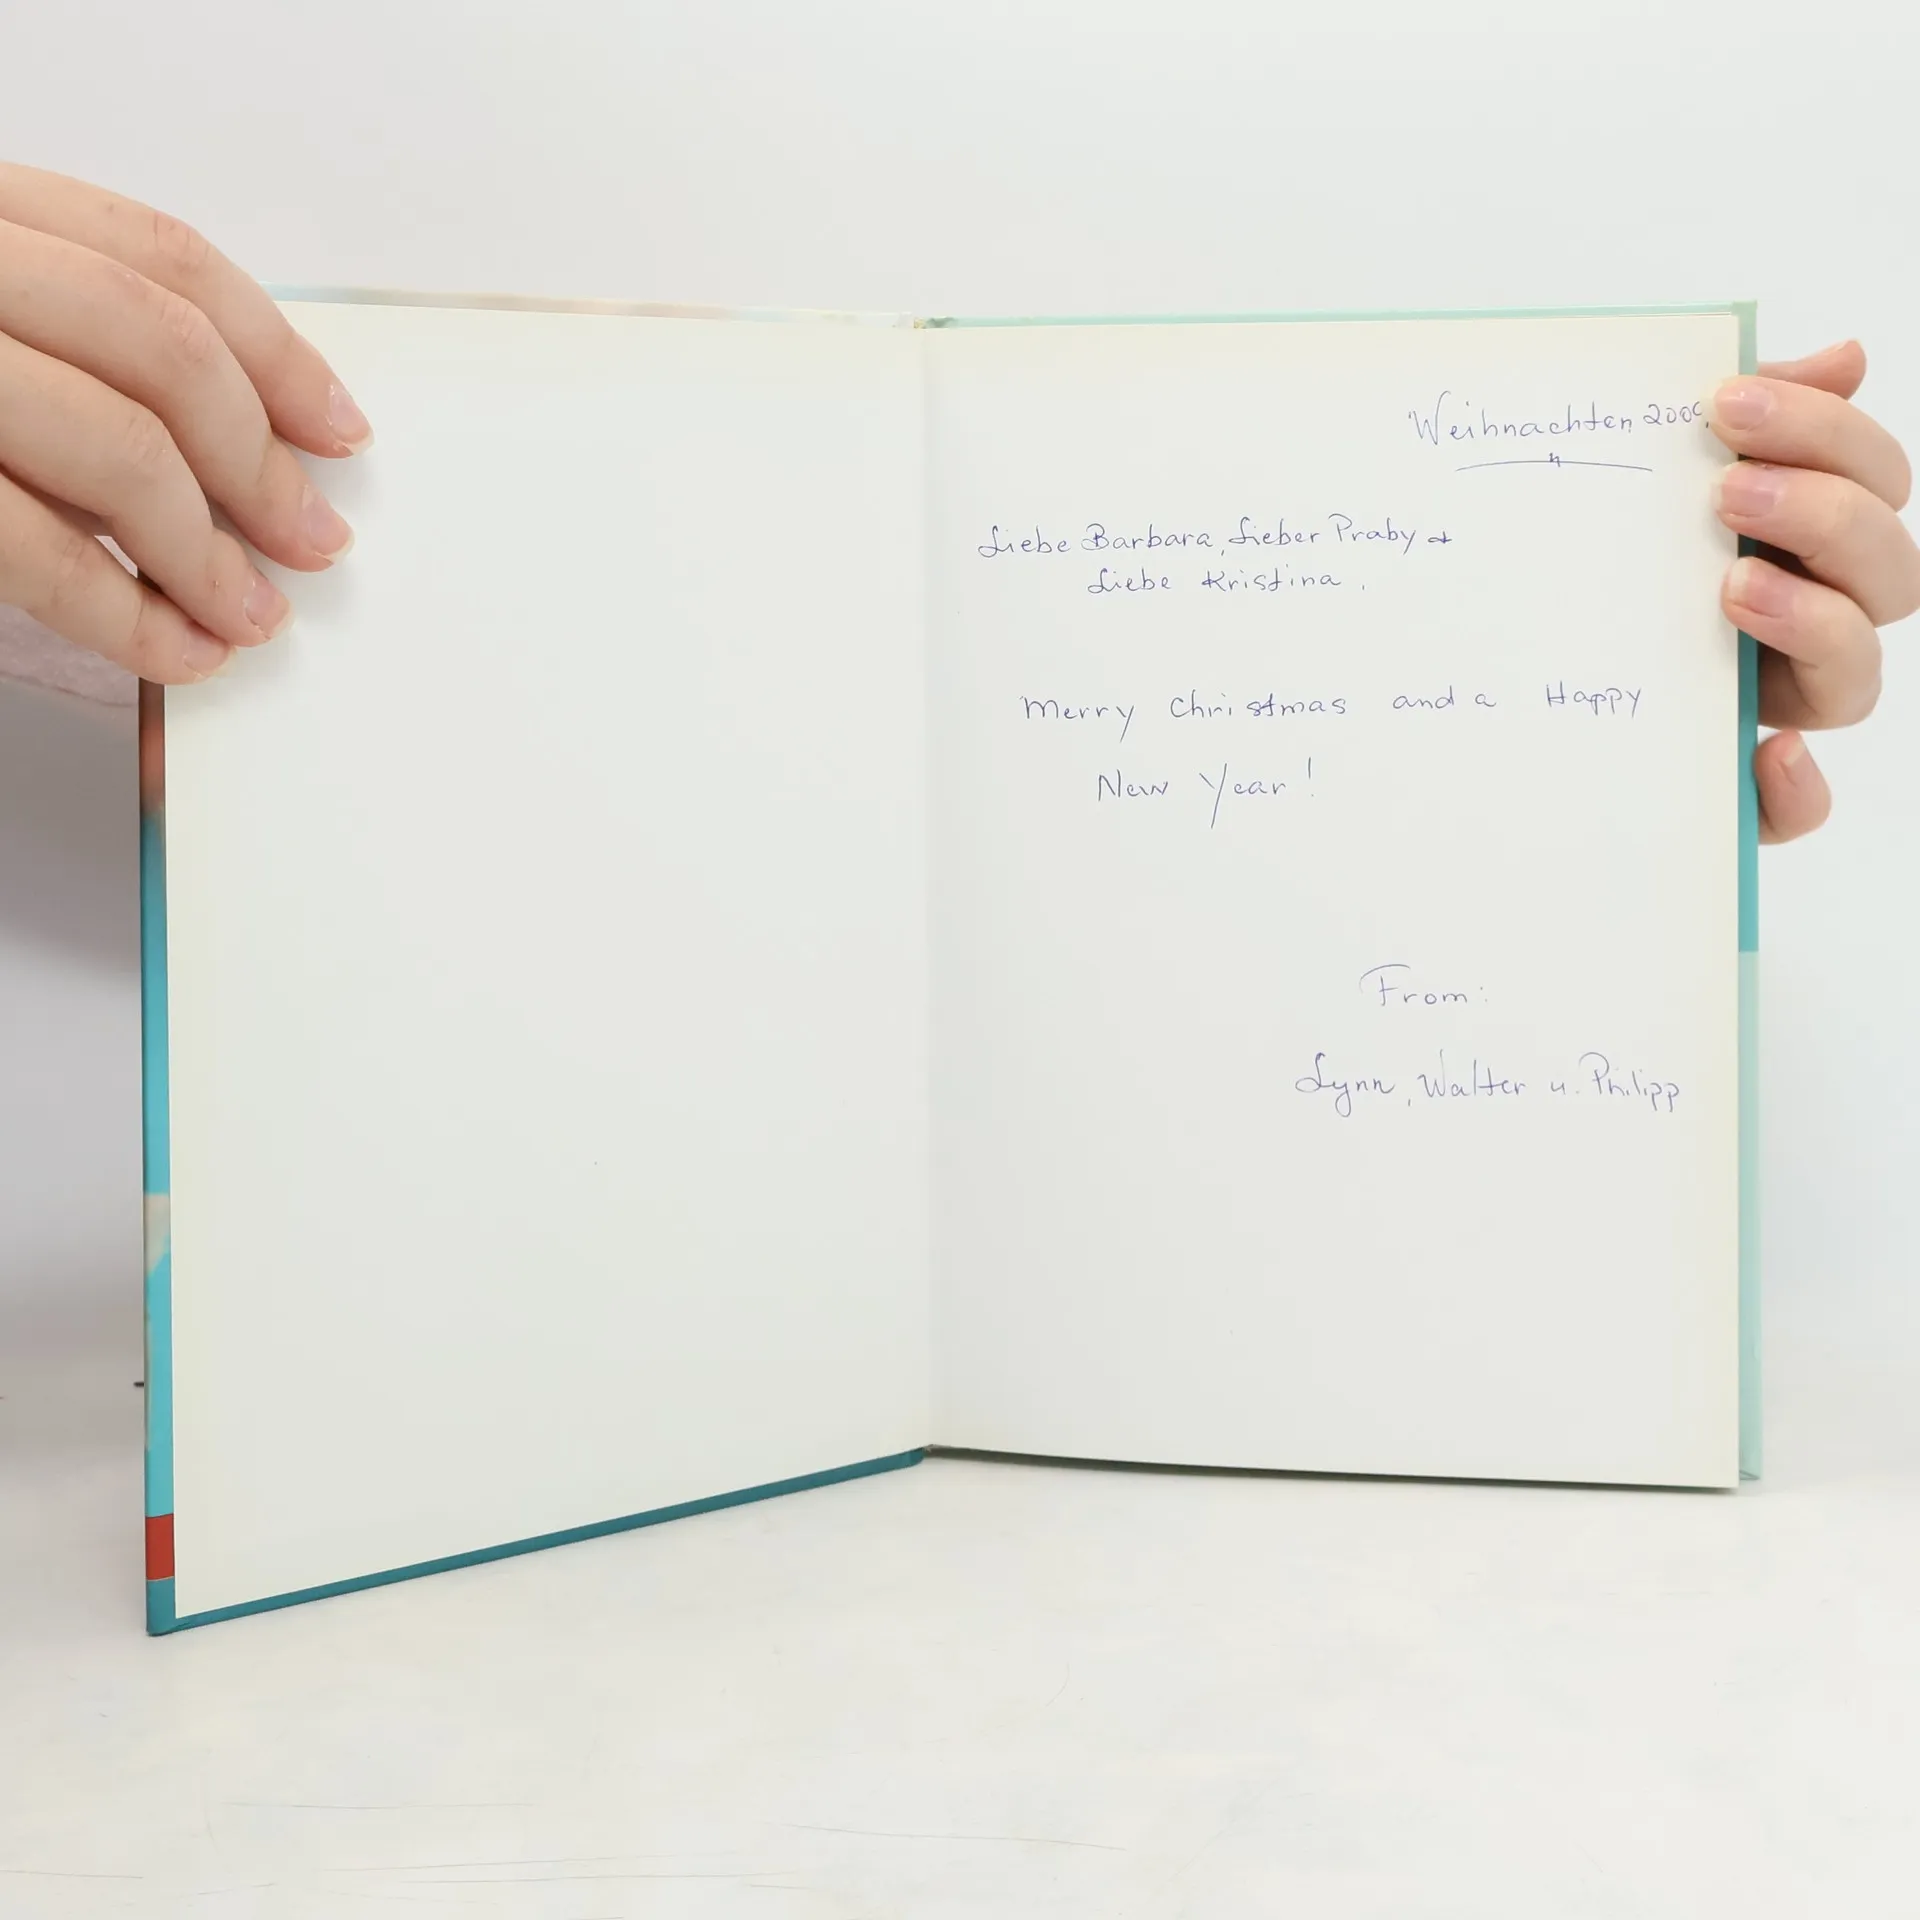 Weihnachten
Liebe Barbara, Lieber Praby &
Liebe Kristina,
Merry Christmas and a Happy
New Year!
From:
Lynn, Walter u. Philipp